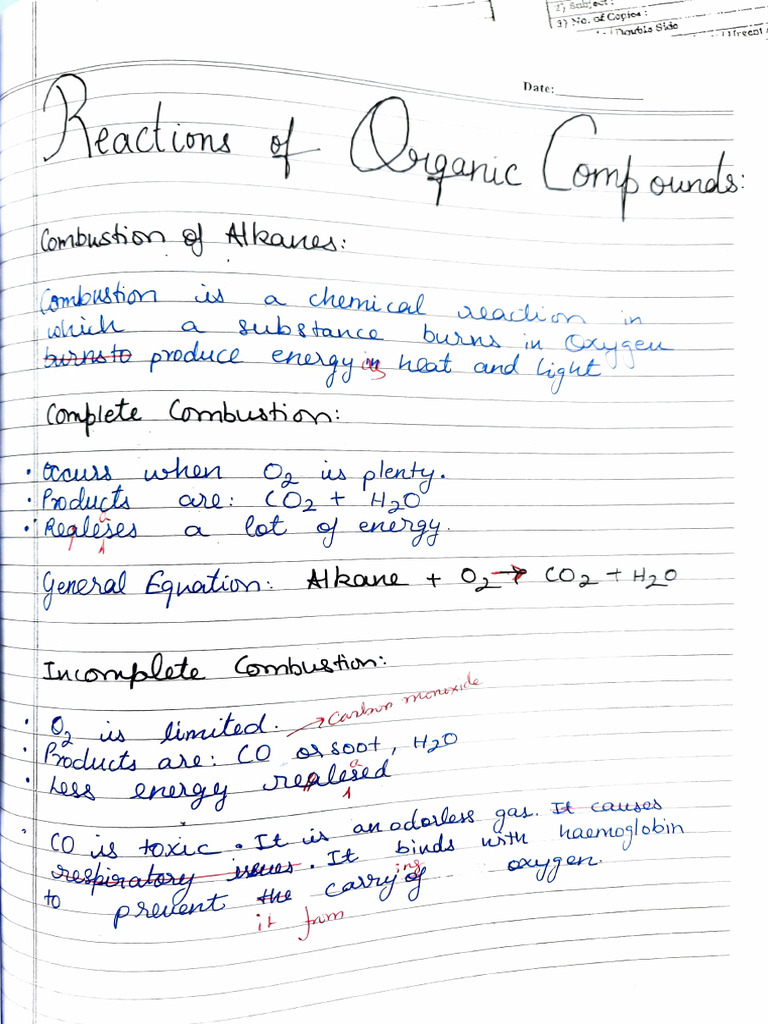 2) Subject:
3) No. of Copies:
Double Side
Date:
Reactions of Organic Compounds:
Combustion of Alkanes:
Combustion is a chemical reaction in
which a substance burns in Oxygen
burns to produce energy as heat and light
Complete Combustion:
• Occurs when O2 is plenty.
• Products are: CO2 + H2O
• Realeses a lot of energy.
General Equation: Alkane + O2 → CO2 + H2O
Incomplete Combustion:
• O2 is limited. → Carbon monoxide
• Products are: CO or soot, H2O
• Less energy realesed
• CO is toxic. It is an odorless gas. It causes
respiratory issues. It binds with haemoglobin
to prevent the carrying oxygen.
it from